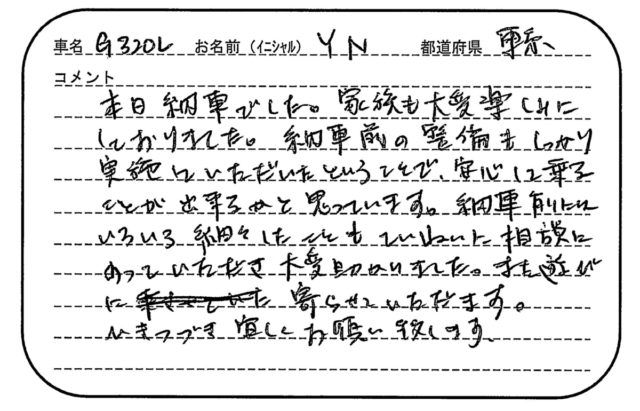 車名 G320L お名前(イニシャル) YN 都道府県 東京
コメント
本日納車でした。家族も大変楽しみに
しておりました。納車前の整備もしっかり
実施していただいたということで、安心して乗る
ことが出来るかと思っています。納車前には
いろいろ細々したこともていねいに相談に
のっていただき大変助かりました。また遊び
に 寄らせていただきます。
ひきつづき宜しくお願い致します。